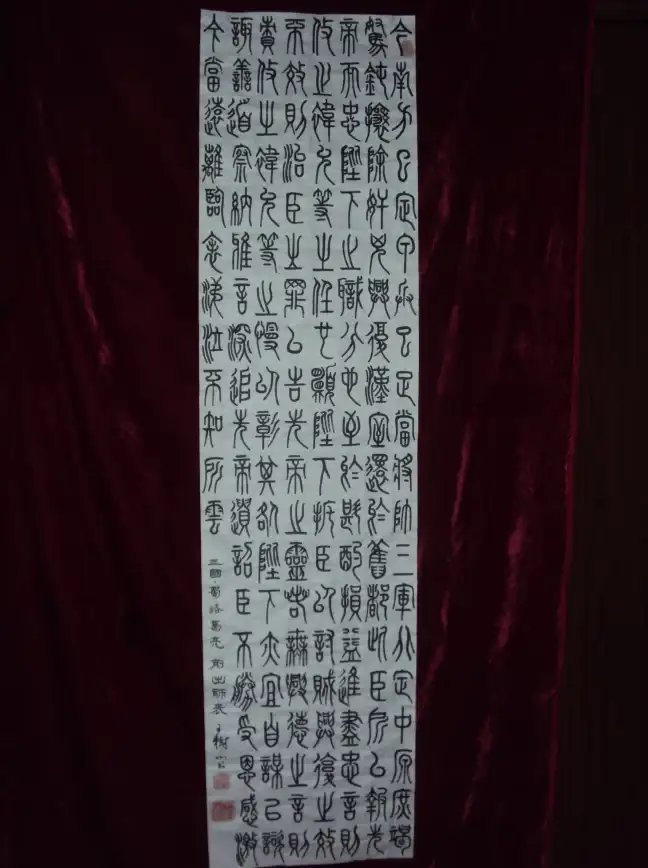 今南方已定甲兵已足當將帥三軍北定中原庶竭
駑鈍攘除奸兇興復漢室還於舊都此臣所以報先
帝而忠陛下之職分也至於斟酌損益進盡忠言則
攸之禕允等之任也願陛下托臣以討賊興復之效
不效則治臣之罪以告先帝之靈若無興德之言則
責攸之禕允等之慢以彰其咎陛下亦宜自謀以諮
諏善道察納雅言深追先帝遺詔臣不勝受恩感激
今當遠離臨表涕泣不知所雲
三國·蜀諸葛亮前出師表